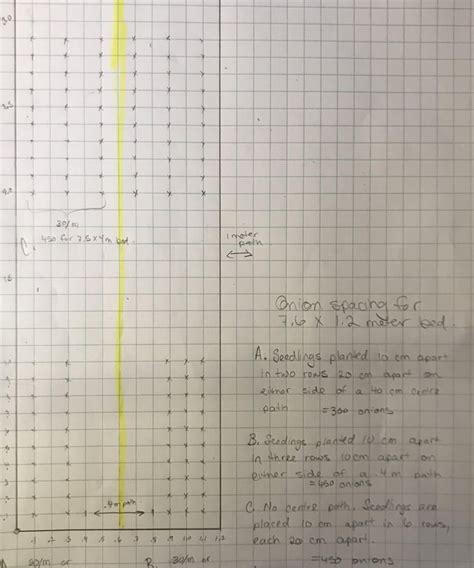 30/m
C. 450 for 7.5 x 4m bed.
1 meter
path
Onion spacing for
7.6 x 1.2 meter bed.
A. Seedlings planted 10 cm apart
in two rows 20 cm apart on
either side of a 40 cm centre
path =300 onions
B. Seedings planted 10 cm apart
in three rows 10cm apart on
either side of a .4m path
=450 onions
C. No centre path. Seedlings are
placed 10 cm apart in 6 rows,
each 20 cm apart.
=450 onions
.4m path
.1 .2 .3 .4 .5 .6 .7 .8 .9 .10 .11 1.2
A. 20/m or
B. 30/m or